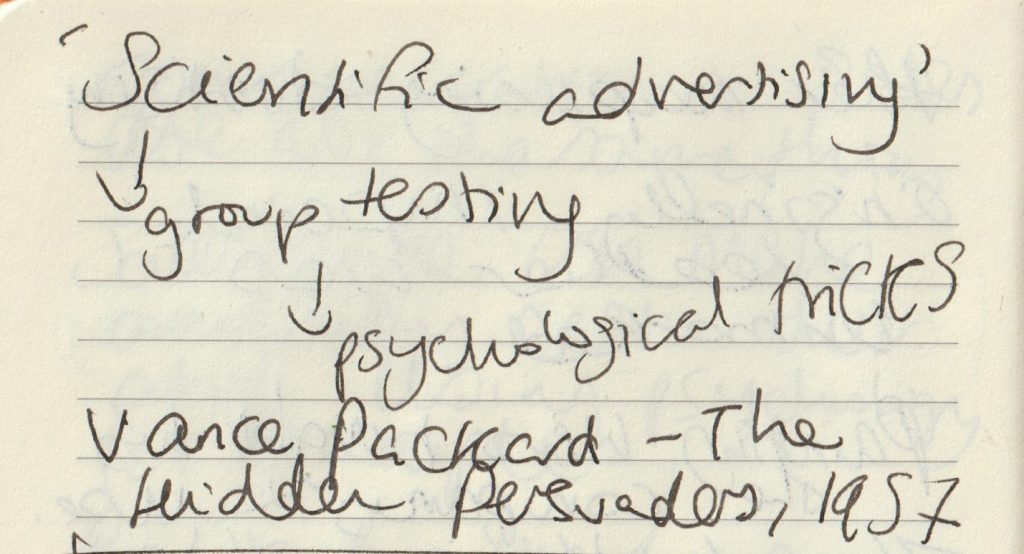 'Scientific advertising'
↓
group testing
↓
psychological tricks
Vance Packard - The
Hidden Persuaders, 1957